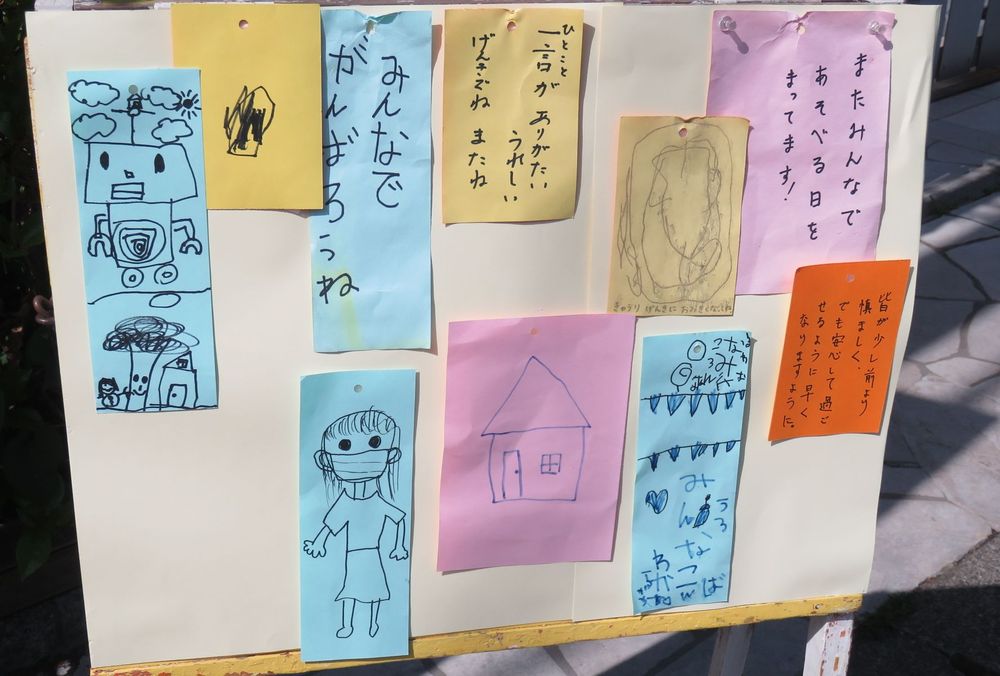 みんなで
がんばろうね
ひとこと
一言が ありがたい
うれしい
げんきでね またね
またみんなで
あそべる日を
まってます!
きゅうり げんきに
皆が少し前より
慎ましく、
でも安心して過ご
せるように早く
なりますように。